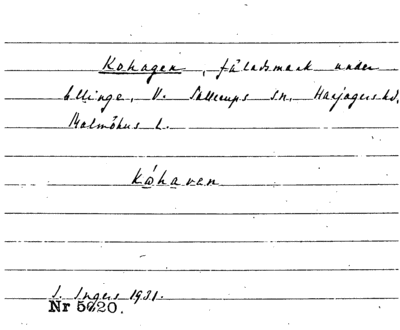 Kohagen, fäladsmark under
Ellinge, V. Sallerups sn, Harjagers hd,
Malmöhus l.
Køhaven
I. Ingers 1931.
Nr 5620.